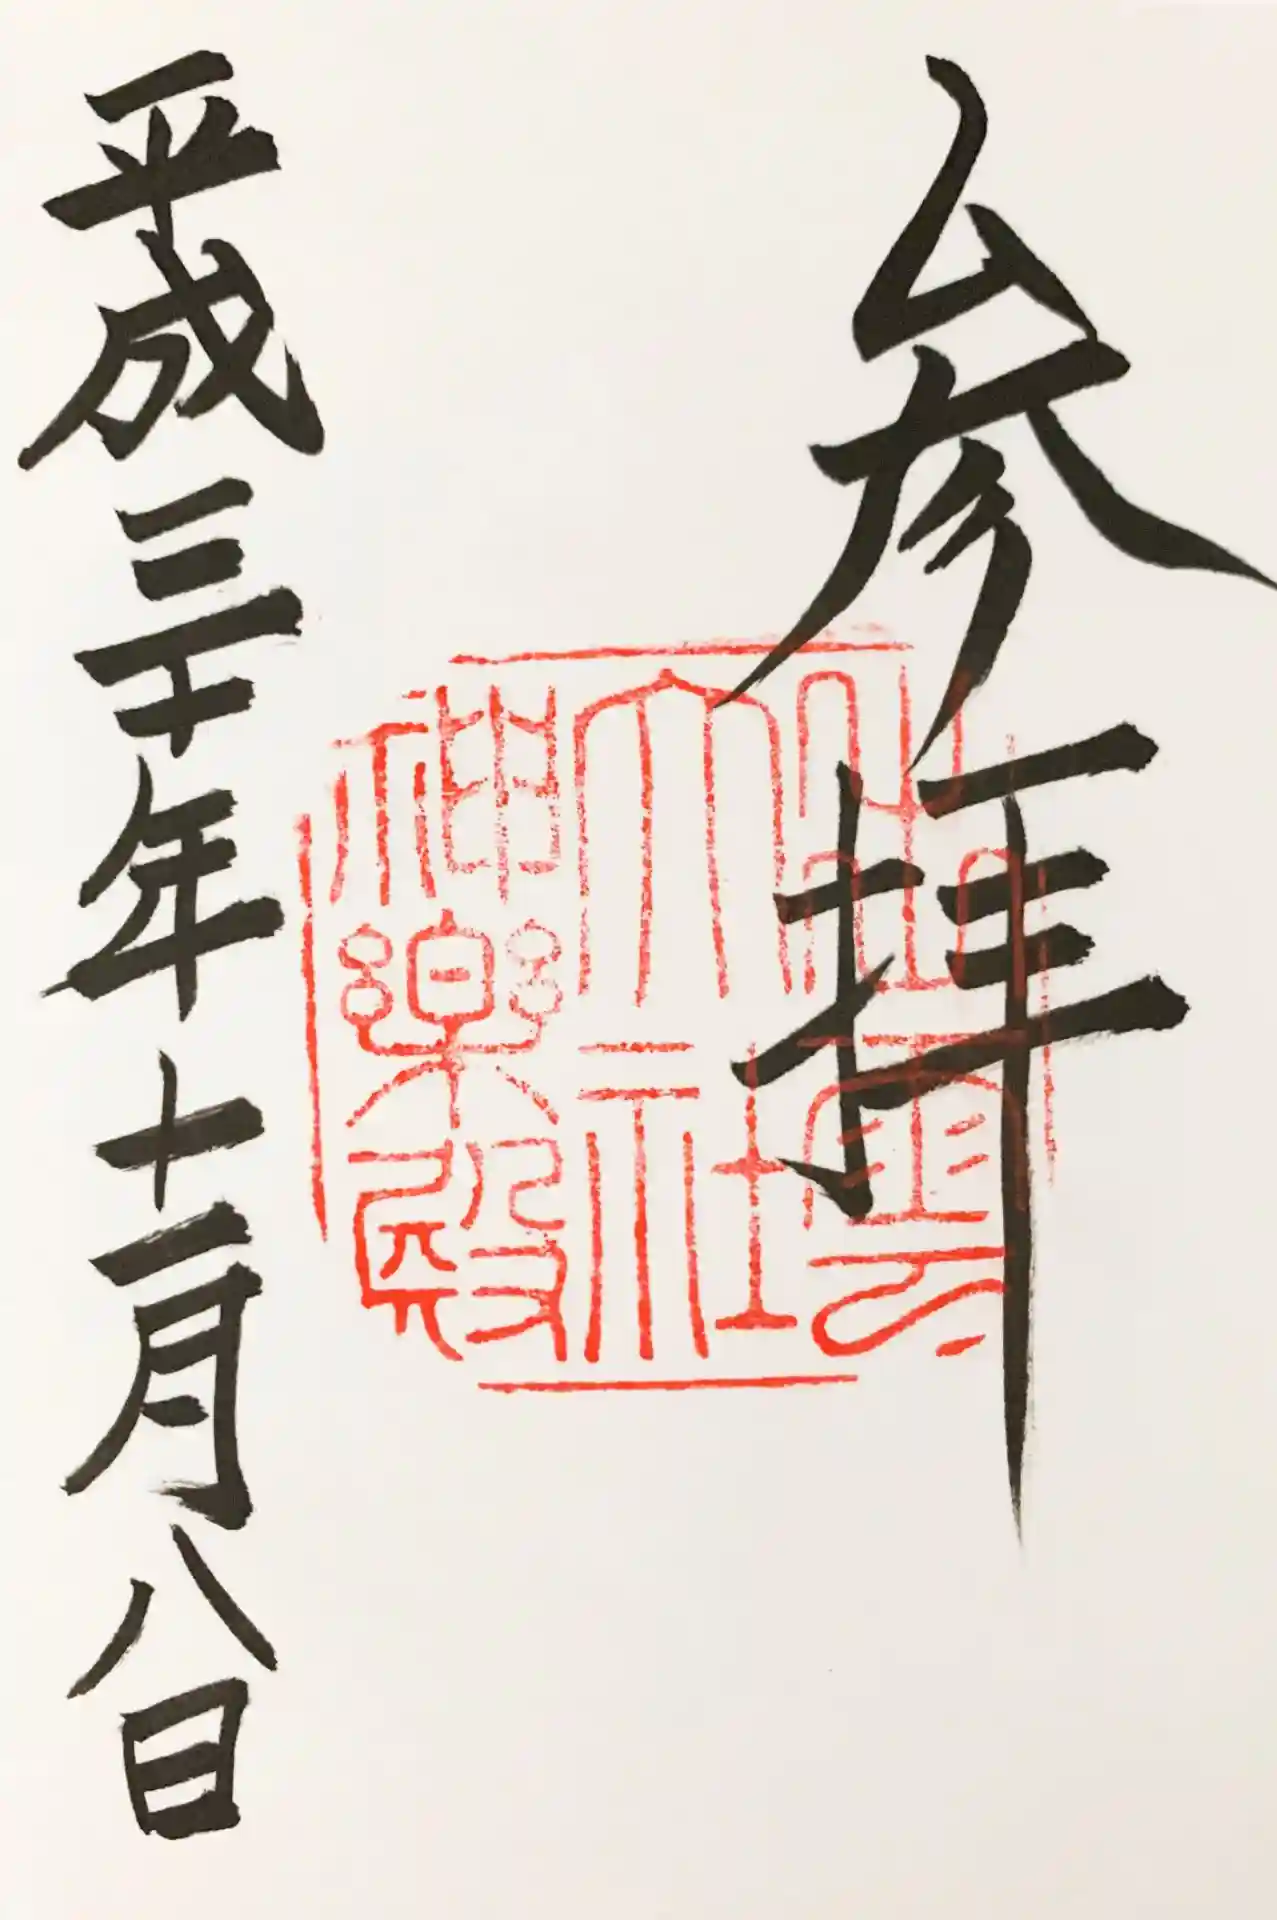 参拝
出雲
大社
神樂殿
平成三十年十一月八日